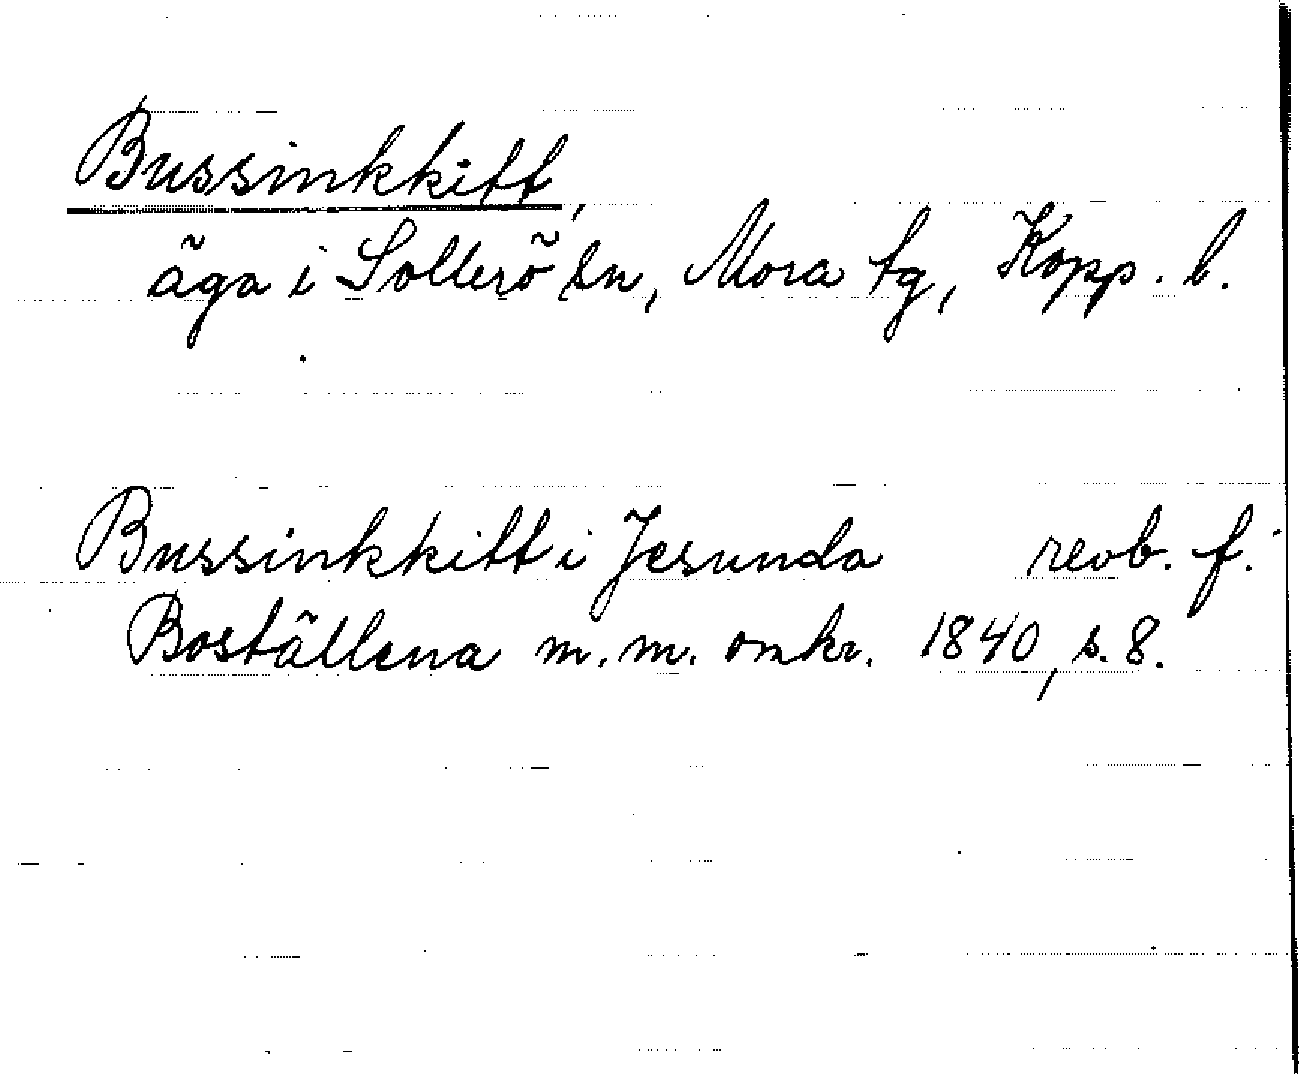 Bussinkkitt,
äga i Sollerö sn, Mora tg, Kopp. l.
Bussinkkitt i Jesunda revb. f.
Boställena m.m. omkr. 1840, s. 8.